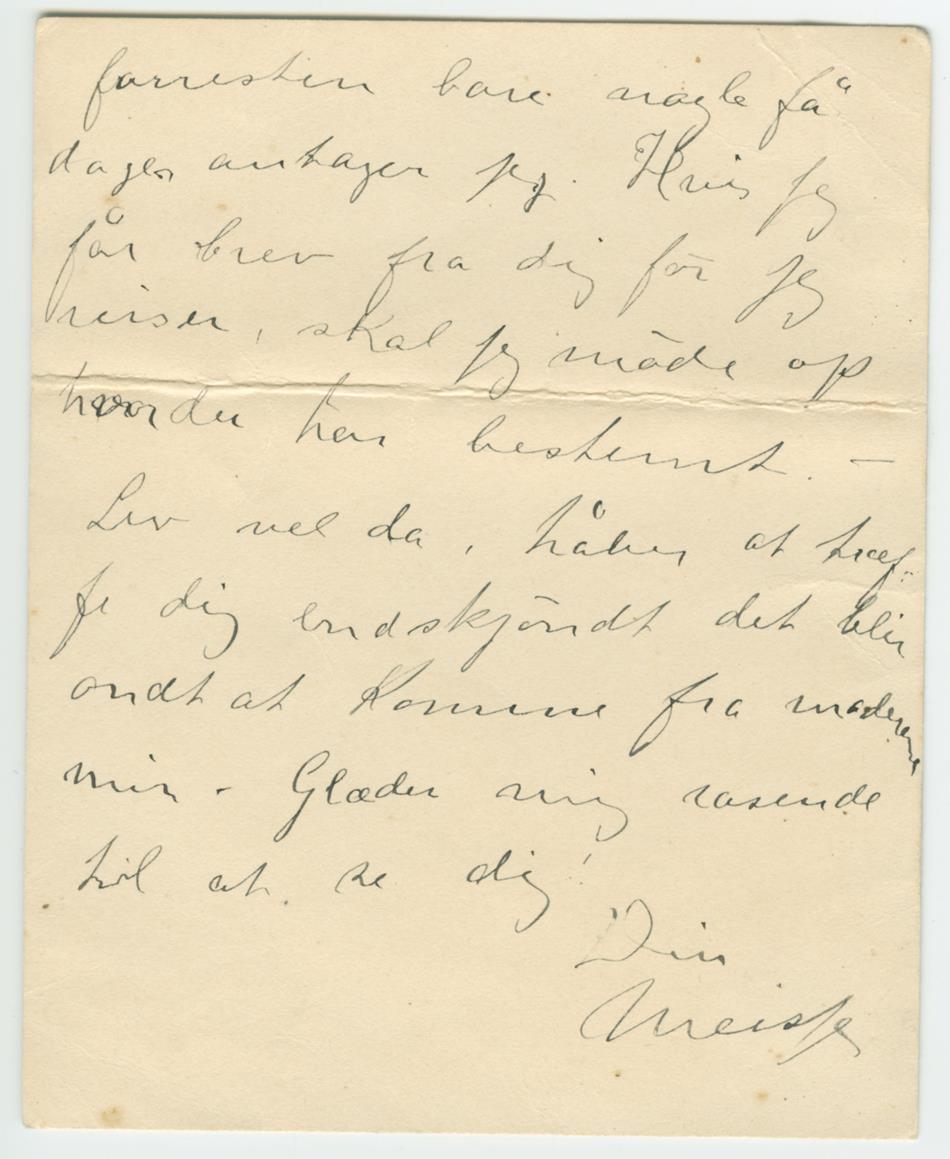 forresten bare nogle få
dage, antager jeg. Hvis jeg
får brev fra dig för jeg
reiser, skal jeg möde op
hvor du har bestemt. –
Lev vel da, håber at træf-
fe dig endskjöndt det blir
ondt at komme fra moderen
min. Glæder mig rasende
til at se dig!
Din